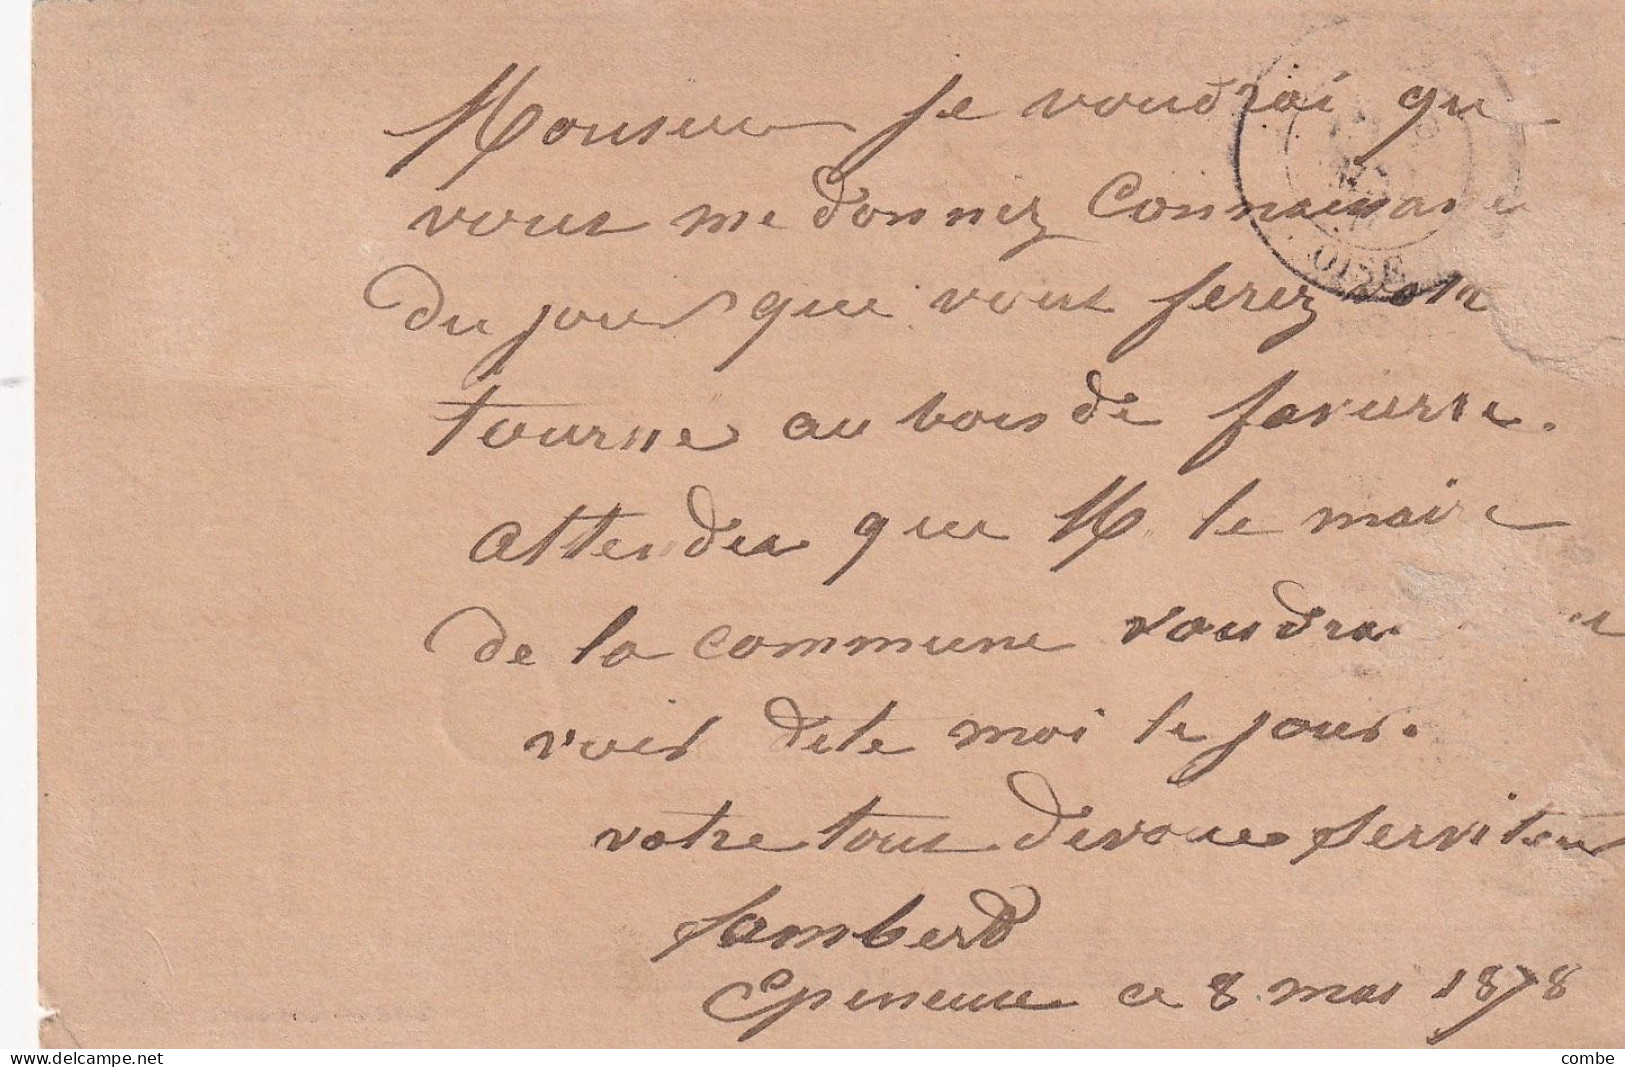 Monsieur Je voudrai qu
vous me donnez Connaissance
du jour que vous serez votre
tourne au bois de favierre.
attendu que M. le maire
de la commune voudra
voir dele moi le jour.
votre tout devoue serviteur
Lamberd
Epeneuse ce 8 mai 1878
OISE
combe